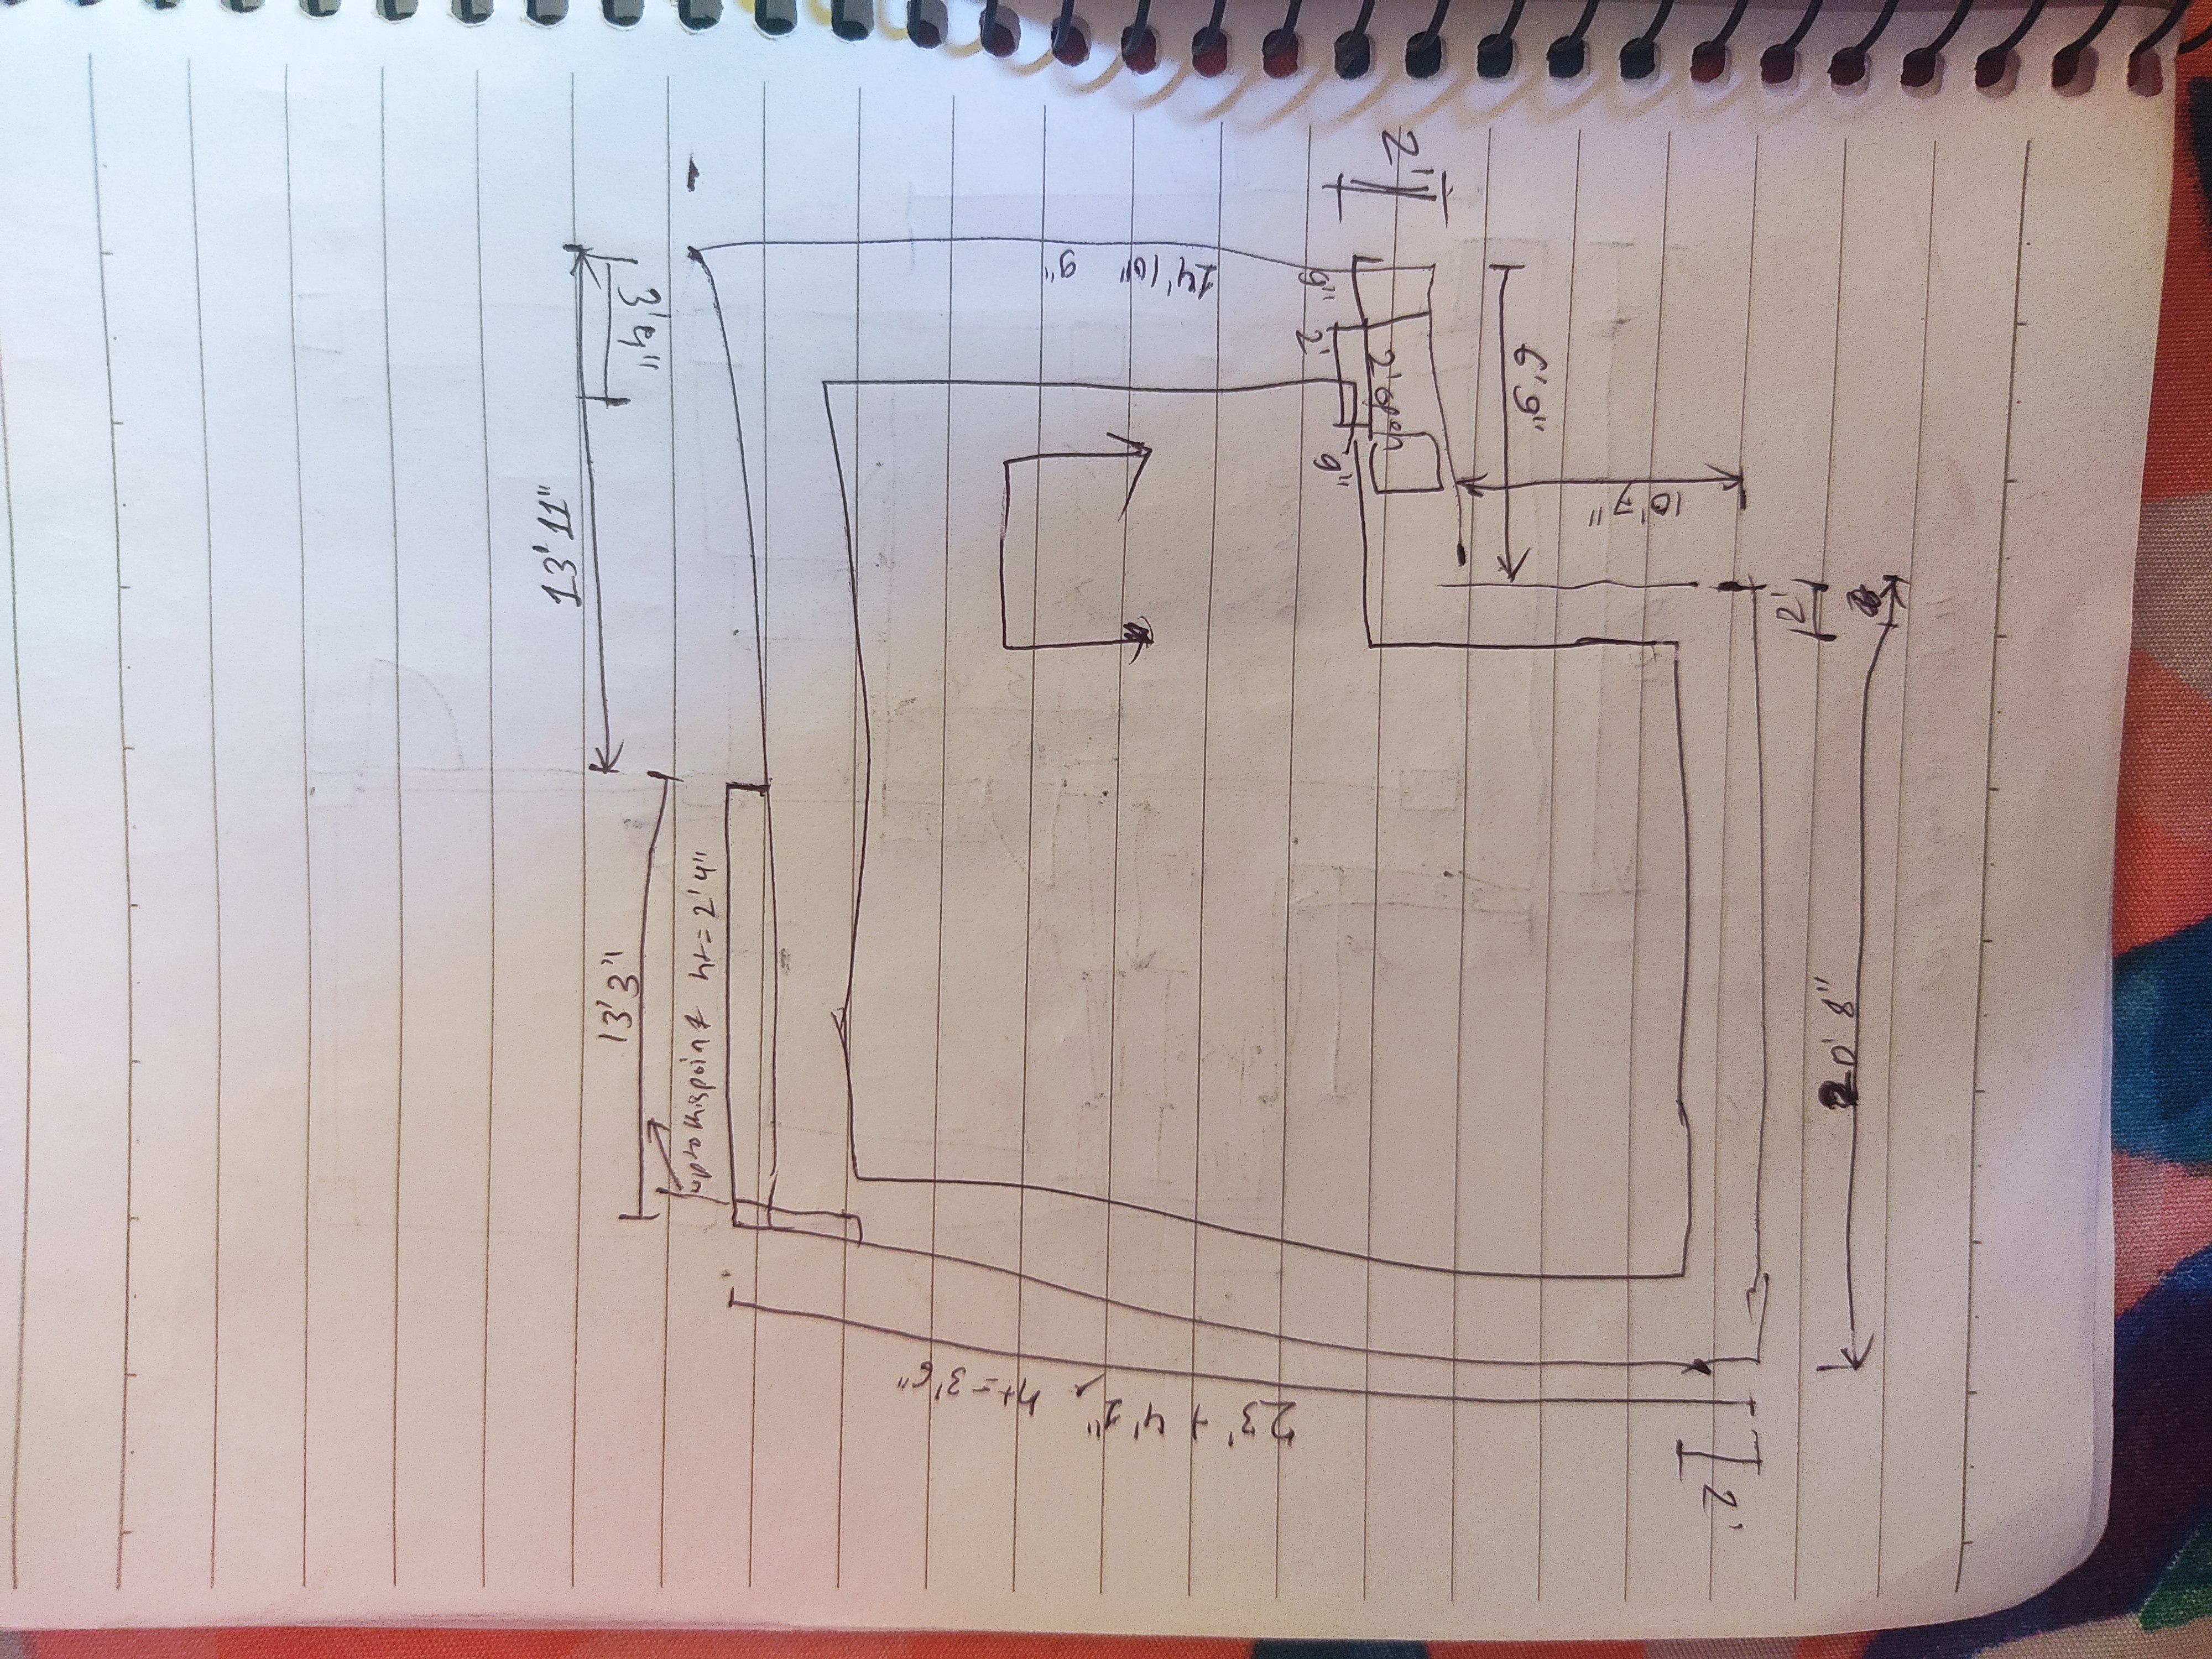 13'11"
3'9"
13'3"
upto this point ht = 2'4"
23' + 4'1", ht = 3'6"
14'10" 9"
9"
2'
9"
2' open
2'
6'9"
10'7"
2'
2'
20'8"